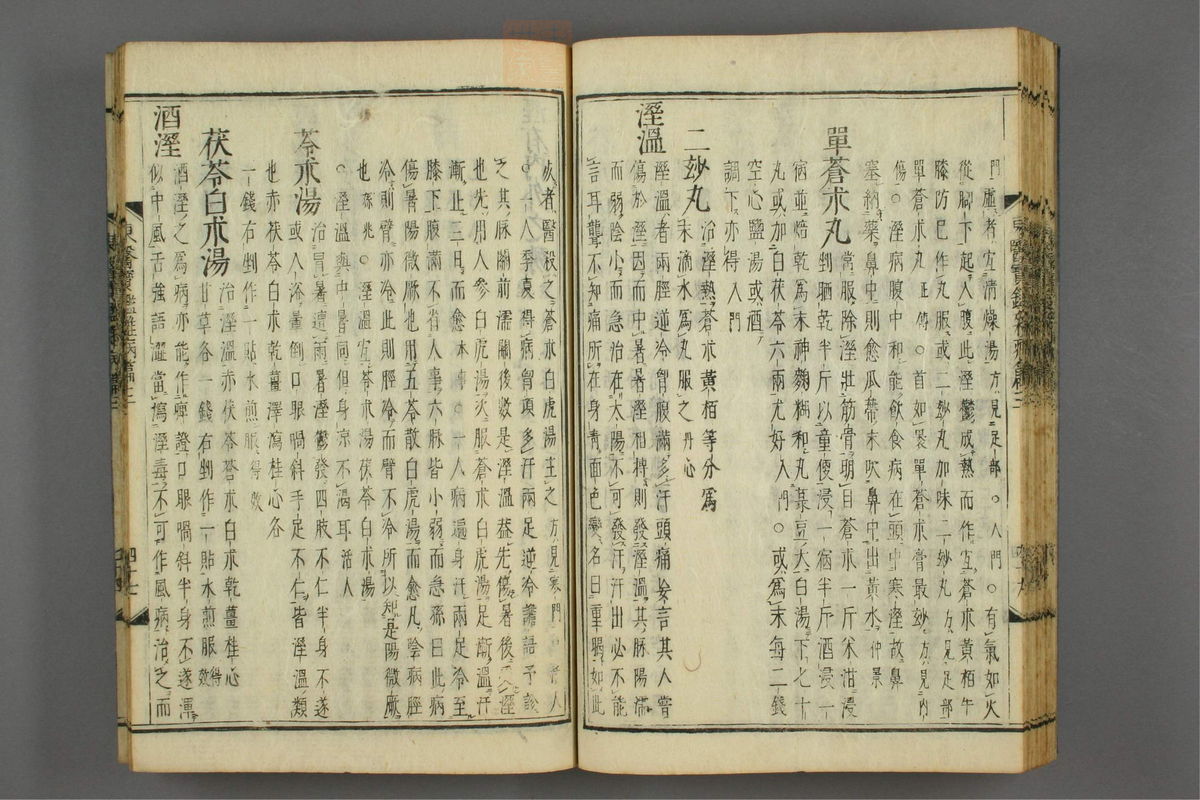 門虛者宜清燥湯方見足部○入門○有氣如火
從脚下起入腹此溼鬱成熱而作宜蒼朮黃栢牛
膝防巳作丸服或二玅丸加味二玅丸方見足部
單蒼朮丸正傳○首如裹單蒼朮膏最玅方見內
傷○溼病腹中和能飮食病在頭中寒溼故鼻
塞納藥鼻中則愈瓜蔕末吹鼻中出黃水仲景
單蒼朮丸常服除溼壯筋骨明目蒼朮一斤米泔浸
剉晒乾半斤以童便浸一宿半斤酒浸一
宿並焙乾爲末神麴糊和丸菉豆大白湯下七十
丸或加白茯苓六兩尤好入門○或爲末每二錢
空心鹽湯或酒
調下亦得入門
二玅丸治溼熱蒼朮黃栢等分爲
末滴水爲丸服之丹心
溼溫溼溫者兩脛逆冷胷腹滿多汗頭痛妄言其人嘗
傷於溼因而中暑暑溼相搏則發溼溫其脉陽濡
而弱陰小而急治在太陽不可發汗汗出必不能
言耳聾不知痛所在身靑面色變名曰重暍如此
死者醫殺之蒼朮白虎湯主之方見寒門○活人
○一人季夏得病胷項多汗兩足逆冷譫語予診
之其脉關前濡關後數是溼溫葢先傷暑後受溼
也先用人參白虎湯次服蒼朮白虎湯足漸溫汗
漸止三日而愈本事○一人病遍身汗兩足冷至
膝下腹滿不省人事六脉皆小弱而急孫曰此病
傷暑陽微厥也用五苓散白虎湯而愈凡陰病脛
冷則臂亦冷此則脛冷而臂不冷所以知是陽微厥
也孫兆○溼溫宜苓朮湯茯苓白朮湯
○溼溫與中暑同但身凉不渴耳活人
苓朮湯治冒暑遭雨暑溼鬱發四肢不仁半身不遂
或入浴暈倒口眼喎斜手足不仁皆溼溫類
也赤茯苓白朮乾薑澤瀉桂心各
一錢右剉作一貼水煎服得效
茯苓白朮湯治溼溫赤茯苓蒼朮白朮乾薑桂心
甘草各一錢右剉作一貼水煎服得效
酒溼酒溼之爲病亦能作痺證口眼喎斜半身不遂渾
似中風舌強語澁當瀉溼毒不可作風病治之而